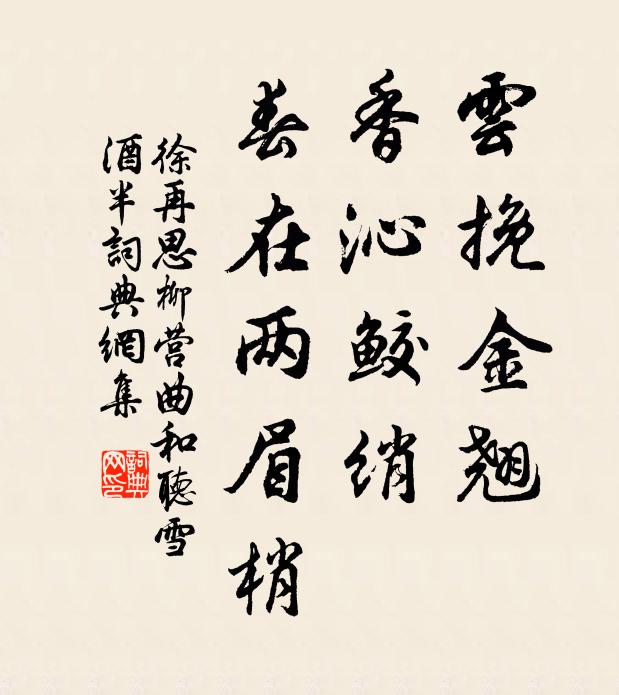 雲挽金翹
香沁鮫绡
春在两眉梢
徐再思柳营曲和聽雪
酒半詞典網集
詞典网印